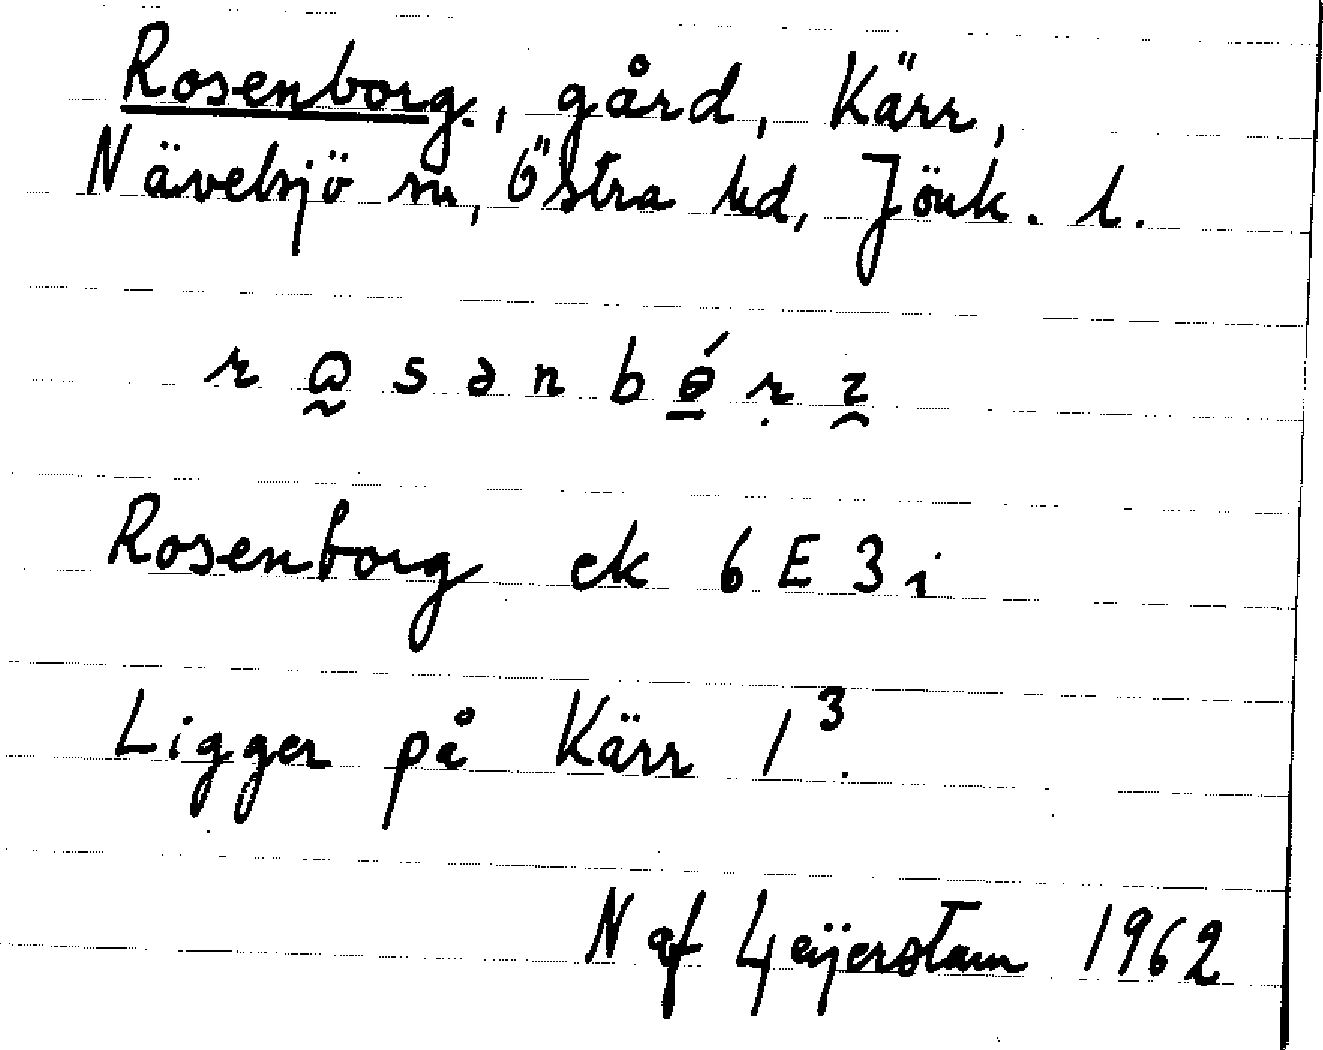 Rosenborg, gård, Kärr,
Nävelsjö sn, Östra hd, Jönk. l.
Rosenborg ek 6E3i
Ligger på Kärr 1³.
N af Geijerstam 1962